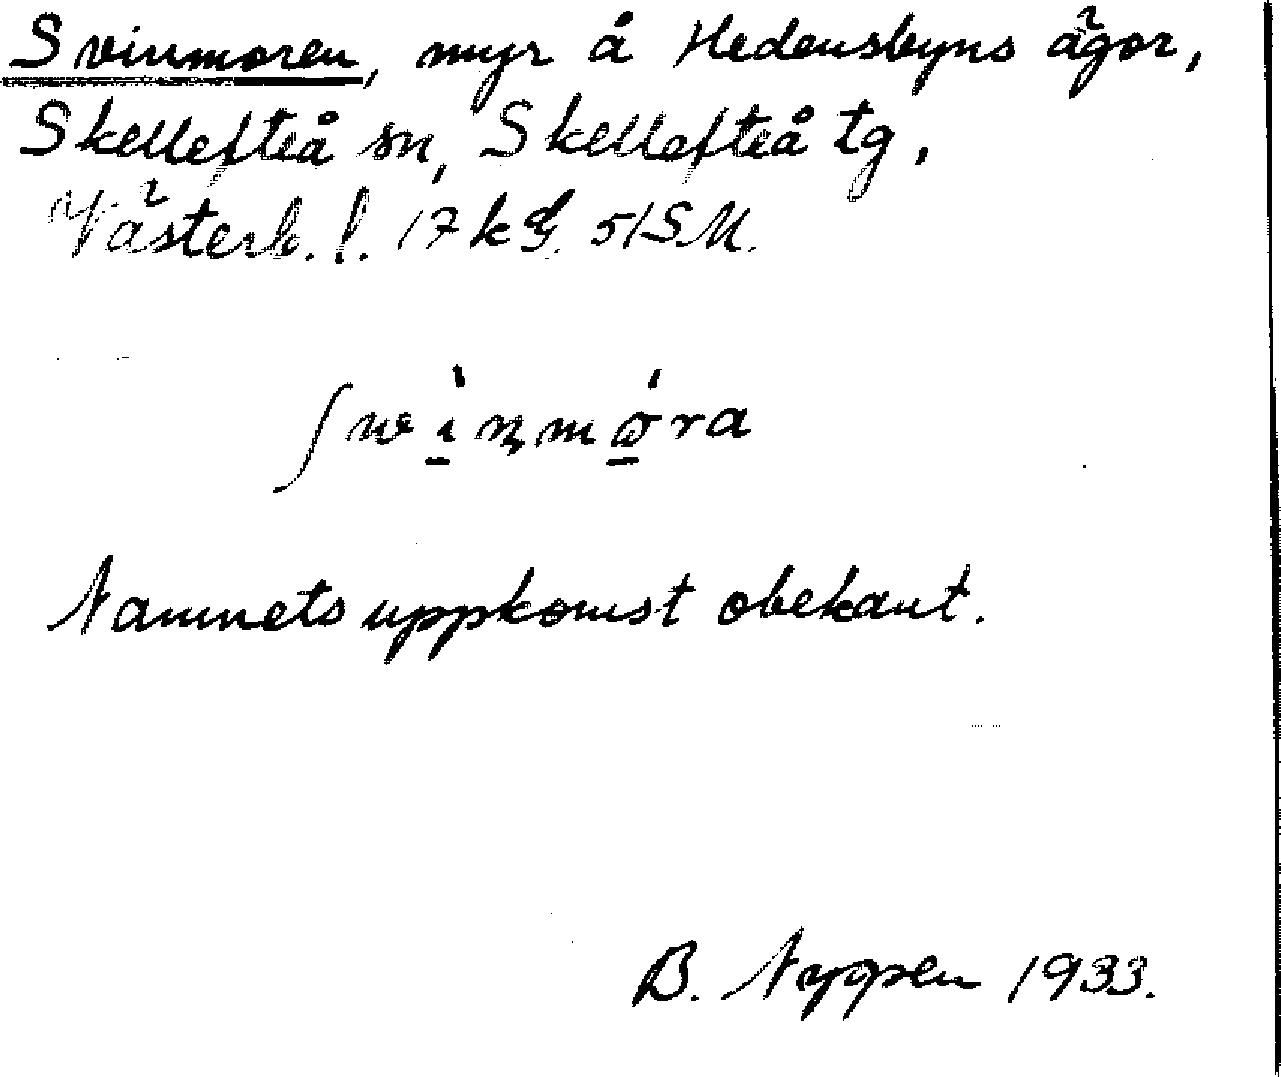 Svinmoren, myr å Hedensbyns ägor,
Skellefteå sn, Skellefteå tg,
Västerb. l. 17 kG. 51SM.
Namnets uppkomst obekant.
B. Nygren 1933.